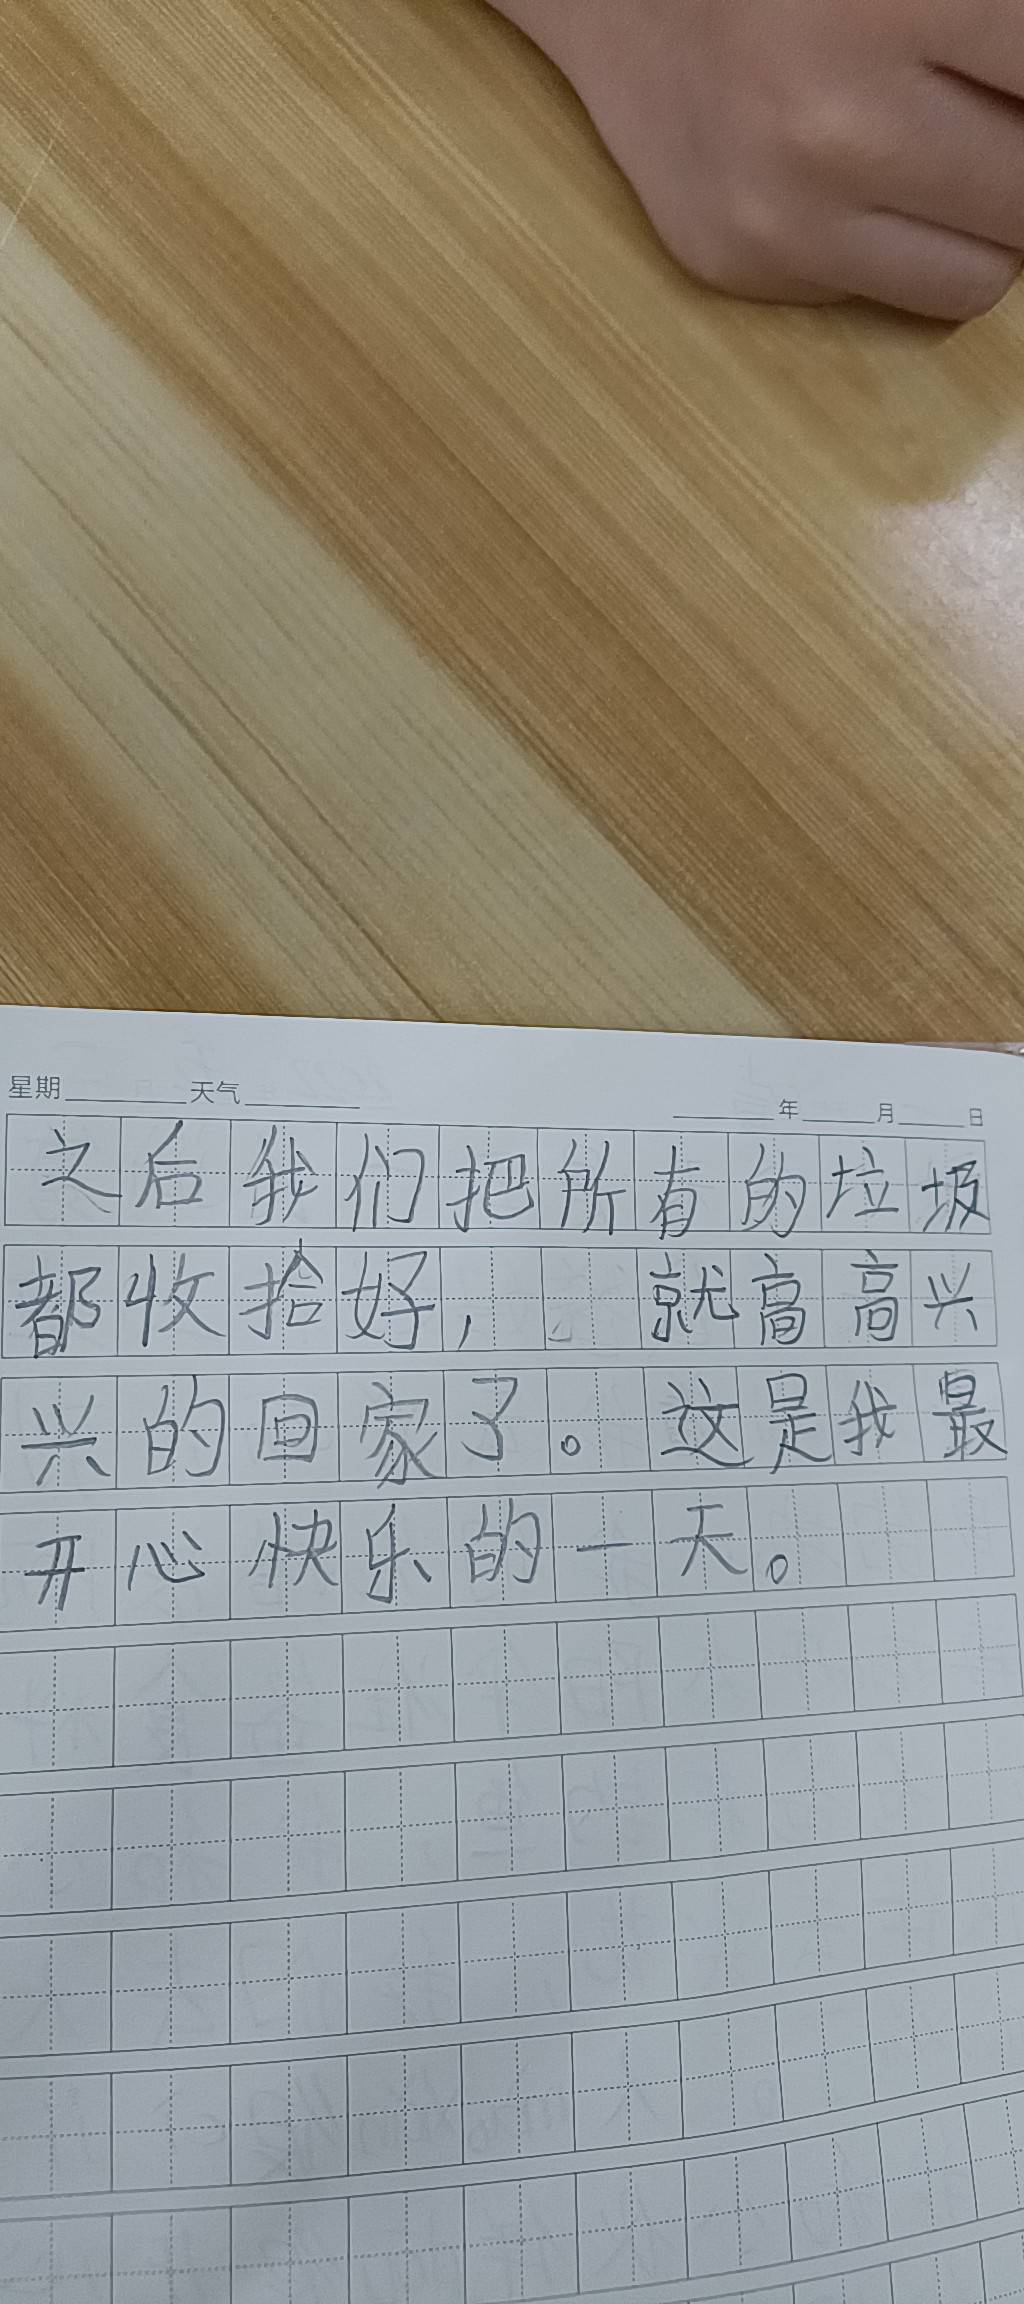 星期 天气 年 月 日
之后我们把所有的垃圾
都收拾好，就高高兴
兴的回家了。这是我最
开心快乐的一天。